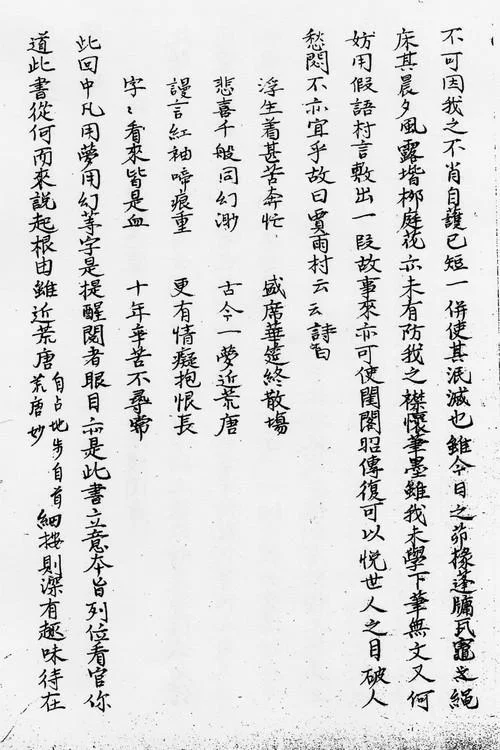 不可因我之不肖自護已短一併使其泯滅也雖今日之茆椽蓬牖瓦竈繩
床其晨夕風露堦栁庭花亦未有防我之襟懷筆墨雖我未學下筆無文又何
妨用假語村言敷出一段故事來亦可使閨閣昭傳復可以悦世人之目破人
愁悶不亦宜乎故曰賈雨村云云詩曰
浮生着甚苦奔忙 盛席華筵終散塲
悲喜千般同幻渺 古今一夢近荒唐
謾言紅袖啼痕重 更有情癡抱恨長
字〻看來皆是血 十年辛苦不尋常
此回中凡用夢用幻等字是提醒閱者眼目亦是此書立意本旨列位看官你
道此書從何而來說起根由雖近荒唐 自占地步自首荒唐妙 細按則深有趣味待在